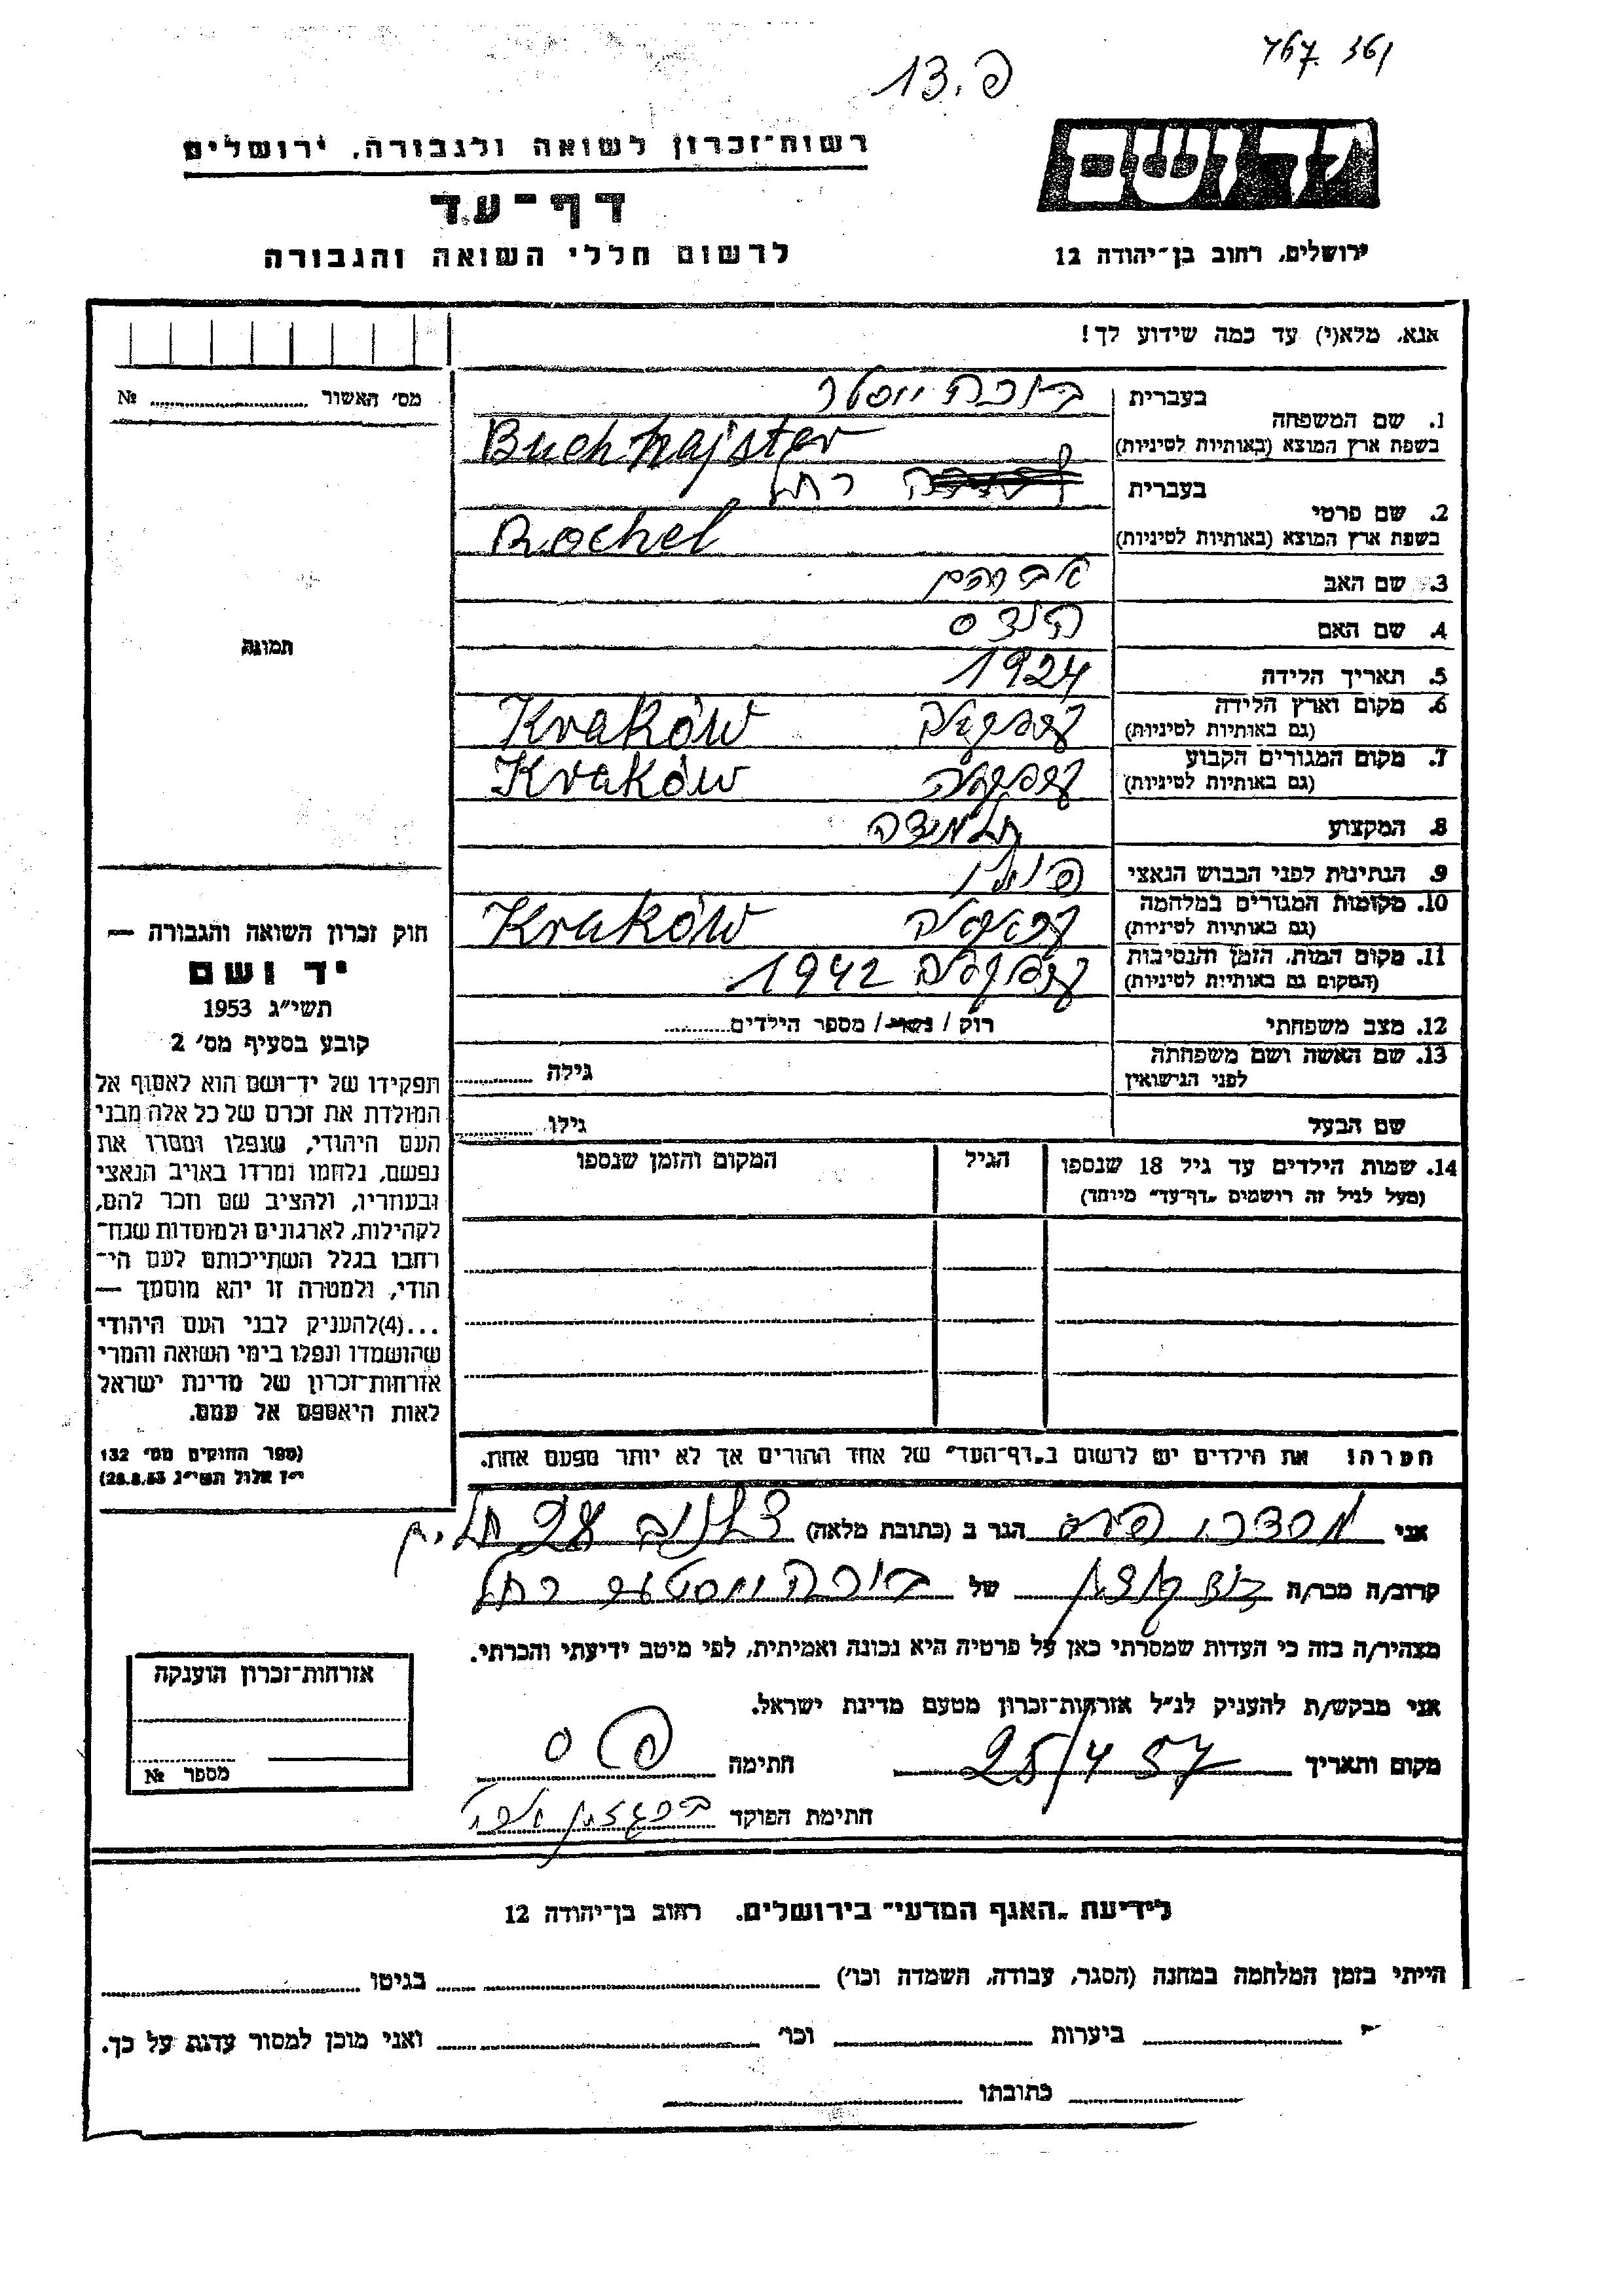 767. 361
13.פ
רשות־זכרון לשואה ולגבורה, ירושלים
יד ושם
דף־עד
לרשום חללי השואה והגבורה
ירושלים, רחוב בן־יהודה 12
אנא, מלא(י) עד כמה שידוע לך!
מס' האשור № 
1. שם המשפחה
בעברית בוכהייסטר
בשפת ארץ המוצא (באותיות לטיניות) Buchhajster
2. שם פרטי
בעברית רחל
בשפת ארץ המוצא (באותיות לטיניות) Rochel
3. שם האב אברהם
4. שם האם הינדס
5. תאריך הלידה 1924
6. מקום וארץ הלידה
(גם באותיות לטיניות) Kraków
7. מקום המגורים הקבוע
(גם באותיות לטיניות) Kraków
8. המקצוע תלמידה
9. הנתינות לפני הכבוש הנאצי פולין
10. מקומות המגורים במלחמה
(גם באותיות לטיניות) Kraków
11. מקום המות, הזמן והנסיבות
(המקום גם באותיות לטיניות) 1942
12. מצב משפחתי רוק / נשוי / מספר הילדים
13. שם האשה ושם משפחתה
לפני הנישואין גילה
שם הבעל גילו
14. שמות הילדים עד גיל 18 שנספו
(מעל לגיל זה רושמים „דף־עד" מיוחד)
הגיל
המקום והזמן שנספו
הערה! את הילדים יש לרשום ב„דף־העד" של אחד ההורים אך לא יותר מפעם אחת.
תמונה
חוק זכרון השואה והגבורה —
יד ושם
תשי"ג 1953
קובע בסעיף מס' 2
תפקידו של יד־ושם הוא לאסוף אל
המולדת את זכרם של כל אלה מבני
העם היהודי, שנפלו ומסרו את
נפשם, נלחמו ומרדו באויב הנאצי
ובעוזריו, ולהציב שם וזכר להם,
לקהילות, לארגונים ולמוסדות שנח־
רבו בגלל השתייכותם לעם הי־
הודי, ולמטרה זו יהא מוסמך —
...(4)להעניק לבני העם היהודי
שהושמדו ונפלו בימי השואה והמרי
אזרחות־זכרון של מדינת ישראל
לאות היאספם אל עמם.
(ספר החוקים מס' 132
י"ז אלול תשי"ג 28.8.53)
אני הגר ב (כתובת מלאה)
קרוב/ה מכר/ה של בוכהייסטר רחל
מצהיר/ה בזה כי העדות שמסרתי כאן על פרטיה היא נכונה ואמיתית, לפי מיטב ידיעתי והכרתי.
אני מבקש/ת להעניק לנ"ל אזרחות־זכרון מטעם מדינת ישראל.
מקום ותאריך 25/4 57 חתימה
חתימת הפוקד
אזרחות־זכרון הוענקה
מספר №
לידיעת „האגף המדעי" בירושלים. רחוב בן־יהודה 12
הייתי בזמן המלחמה במחנה (הסגר, עבודה, השמדה וכו') בגיטו
ביערות וכו' ואני מוכן למסור עדות על כך.
כתובתו